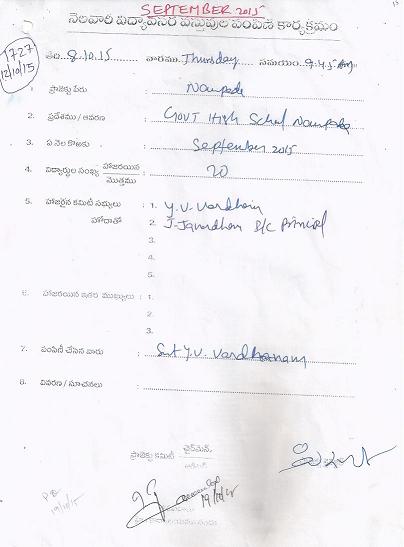 SEPTEMBER 2015
నెలవారీ విద్యావసర వస్తువుల పంపిణీ కార్యక్రమం
1727
12/10/15
తేది 8.10.15 వారము Thursday సమయం 9.45 AM
1. ప్రాజెక్టు పేరు : Noupada
2. ప్రదేశము / ఆవరణ : Govt High School Noupada
3. ఏ నెల కొఱకు : September 2015
4. విద్యార్థుల సంఖ్య హాజరయిన / మొత్తము : 20
5. హాజరైన కమిటీ సభ్యులు : 1. Y.V. Vardhan
హోదాతో 2. J. Janardhan I/C Principal
3.
4.
5.
6. హాజరయిన ఇతర ముఖ్యులు : 1.
2.
3.
7. పంపిణీ చేసిన వారు : Smt Y.V. Vardhanam
8. వివరణ / సూచనలు :
ప్రాజెక్టు కమిటీ ఛైర్మెన్
19/10/15
19/10/15